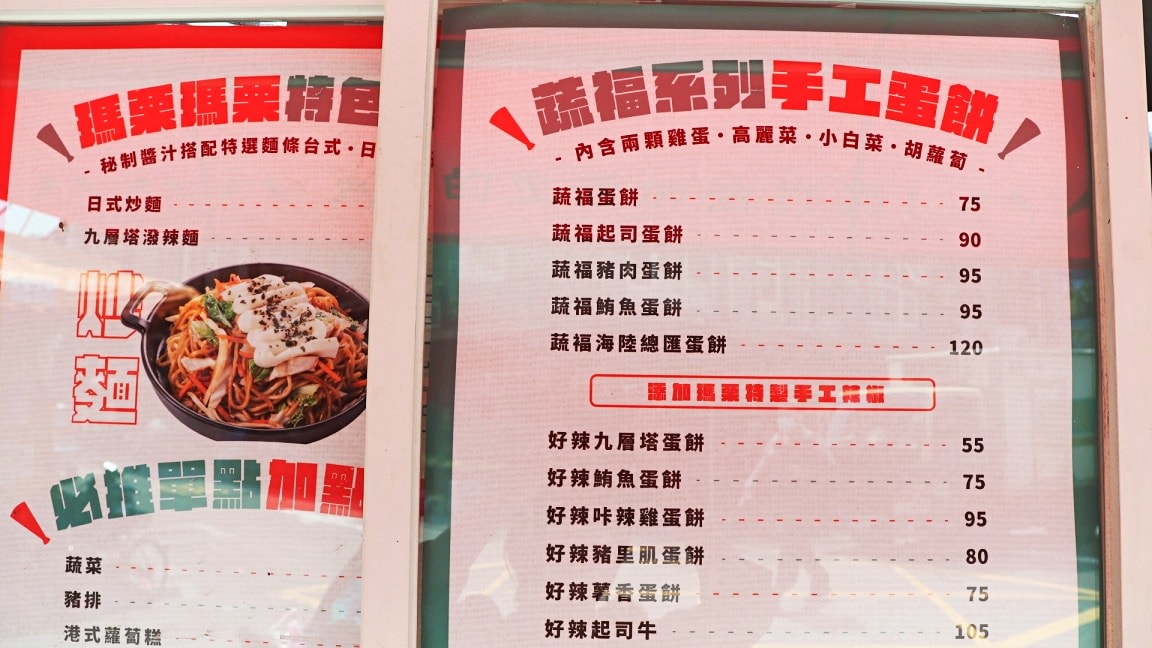 瑪栗瑪栗特色
- 秘制醬汁搭配特選麵條台式・日
日式炒麵
九層塔潑辣麵
炒麵
必推單點加點
蔬菜
豬排
港式蘿蔔糕
蔬福系列手工蛋餅
- 內含兩顆雞蛋・高麗菜・小白菜・胡蘿蔔 -
蔬福蛋餅 75
蔬福起司蛋餅 90
蔬福豬肉蛋餅 95
蔬福鮪魚蛋餅 95
蔬福海陸總匯蛋餅 120
添加瑪栗特製手工辣椒
好辣九層塔蛋餅 55
好辣鮪魚蛋餅 75
好辣咔辣雞蛋餅 95
好辣豬里肌蛋餅 80
好辣薯香蛋餅 75
好辣起司牛 105